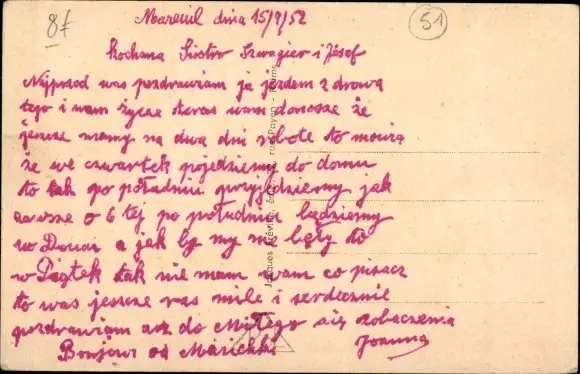 8f
51
Mareuil dnia 15/9/52
Kochana Siostro Szwagier i Jósef
Najprzod was pozdrawiam ja jezdem zdrowa
tego i wam życze teras wam donosze że
jeszcze mamy na dwa dni robote to mowią
że we czwartek pojedziemy do domu
to tak po południu przyjdziemy jak
zawsze o 6 tej po południu będziemy
w Douai a jak by my nie były to
w Piątek tak nie mam wam co pisacz
to was jeszcze ras mile i serdecznie
pozdrawiam asz do Miłego się zobaczenia
Bonjour od Marichki Joanna
Jacques Fréville, édit., rue Payen - Reims